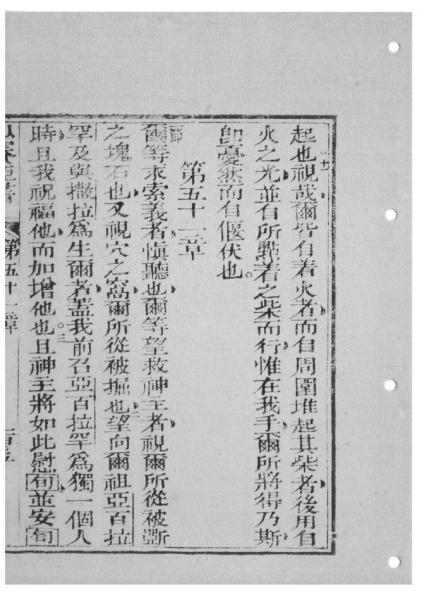 起也視哉爾皆自着火者而自周圍堆起其柴者後用自
火之光並自所點着之柴而行惟在我手爾所將得乃斯
卽憂愁而自偃伏也
第五十一章
爾等求索義者愼聽也爾等望救神主者視爾所從被斵
之塊石也又視穴之窩爾所從被掘也望向爾祖亞百拉
罕及與撒拉爲生爾者蓋我前召亞百拉罕爲獨一個人
時且我祝福他而加增他也三且神主將如此慰旬並安旬
第五十一章